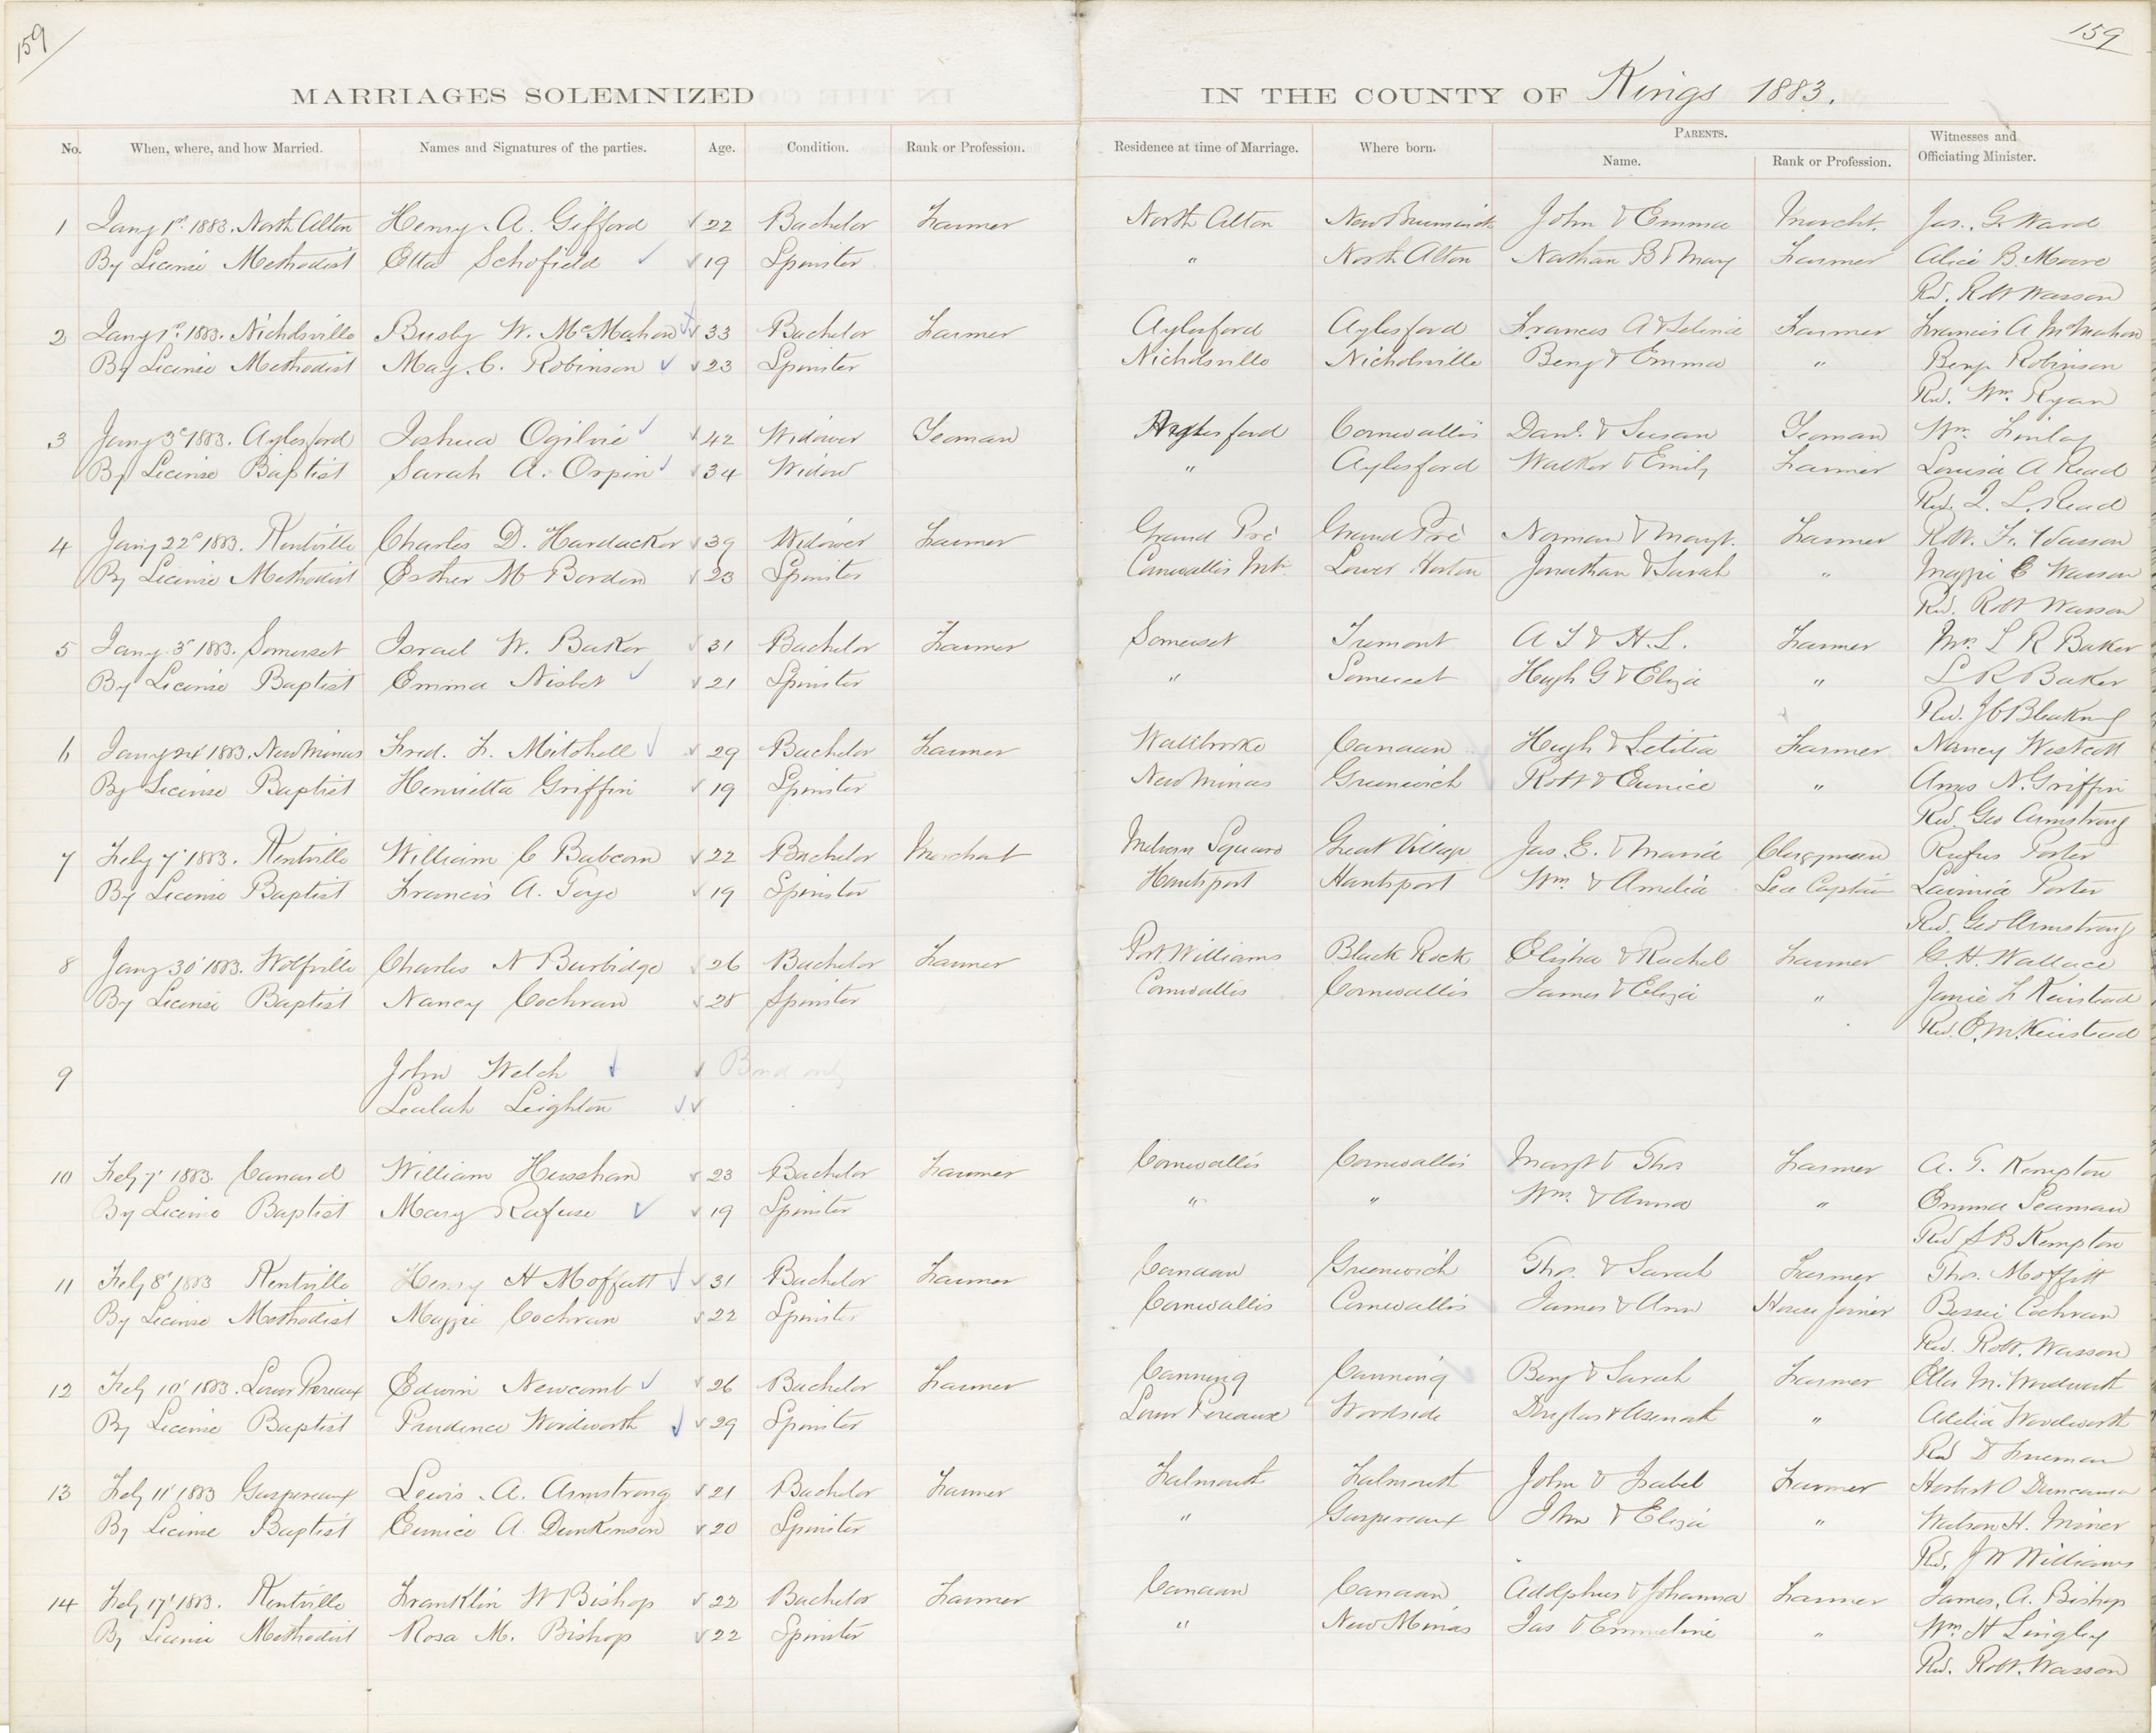 159
159
MARRIAGES SOLEMNIZED IN THE COUNTY OF Kings 1883.
No. When, where, and how Married. Names and Signatures of the parties. Age. Condition. Rank or Profession. Residence at time of Marriage. Where born. PARENTS. Name. Rank or Profession. Witnesses and Officiating Minister.
1 Jany 1st 1883. North Alton Henry A. Gifford 22 Bachelor Farmer North Alton New Brunswick John & Emma Mercht. Jas. G. Ward
By License Methodist Etta Schofield 19 Spinster " North Alton Nathan B & Mary Farmer Alice B. Moore
Rev. Robt Wasson
2 Jany 1st 1883. Nicholsville Busby W. McMahon 33 Bachelor Farmer Aylesford Aylesford Frances A & Farmer Francis A McMahon
By License Methodist May. C. Robinson 23 Spinster Nicholsville Nicholsville Benj & Emma " Benj. Robinson
Rev. Wm. Ryan
3 Jany 3d 1883. Aylesford Joshua Ogilvie 42 Widower Yeoman Aylesford Cornwallis Danl. & Susan Yeoman Wm. Finlay
By License Baptist Sarah A. Orpin 34 Widow " Aylesford Walker & Emily Farmer Louisa A Read
Rev. J. L. Read
4 Jany 22d 1883. Kentville Charles D. Hardacker 39 Widower Farmer Grand Pré Grand Pré Norman & Margt. Farmer Robt. F. Wasson
By License Methodist Esther M Borden 23 Spinster Cornwallis Mt. Lower Horton Jonathan & Sarah " Maggie E Wasson
Rev. Robt Wasson
5 Jany 3d 1883. Somerset Israel W. Baker 31 Bachelor Farmer Somerset Tremont A I & H. L. Farmer Mrs. L R Baker
By License Baptist Emma Nisbet 21 Spinster " Somerset Hugh G & Eliza " L R Baker
Rev. J C Bleakney
6 Jany 24' 1883. New Minas Fred. F. Mitchell 29 Bachelor Farmer Wallbrooke Canaan Hugh & Letitia Farmer Nancy Westcott
By License Baptist Henrietta Griffin 19 Spinster New Minas Greenwich Robt & Eunice " Amos N. Griffin
Rev. Geo Armstrong
7 Feby 7' 1883. Kentville William C Balcom 22 Bachelor Merchant Melvern Square Great Village Jas. E. & Maria Clergyman Rufus Porter
By License Baptist Francis A. Toye 19 Spinster Hantsport Hantsport Wm. & Amelia Sea Captain Lavinia Porter
Rev. Geo Armstrong
8 Jany 30' 1883. Wolfville Charles N Burbidge 26 Bachelor Farmer Port Williams Black Rock Elisha & Rachel Farmer C. H. Wallace
By License Baptist Nancy Cochran 28 Spinster Cornwallis Cornwallis James & Eliza " Janie F Keirstead
Rev. E. M. Keirstead
9 John Welch Bond only
Lealah Leighton
10 Feby 7' 1883. Canard William Husshan 23 Bachelor Farmer Cornwallis Cornwallis Margt & Thos Farmer A. T. Kempton
By License Baptist Mary Rafuse 19 Spinster " " Wm. & Anna " Emma Seaman
Rev S B Kempton
11 Feby 8' 1883 Kentville Henry H Moffatt 31 Bachelor Farmer Canaan Greenwich Thos. & Sarah Farmer Thos. Moffitt
By License Methodist Maggie Cochran 22 Spinster Cornwallis Cornwallis James & Ann House Joiner Bessie Cochran
Rev. Robt. Wasson
12 Feby 10' 1883. Lower Pereaux Edwin Newcomb 26 Bachelor Farmer Canning Canning Benj & Sarah Farmer Ella M. Woodworth
By License Baptist Prudence Woodworth 29 Spinster Lower Pereaux Woodside Douglas & Asenath " Adelia Woodworth
Rev D Freeman
13 Feby 11' 1883 Gaspereaux Lewis A. Armstrong 21 Bachelor Farmer Falmouth Falmouth John & Isabel Farmer Herbert O Duncanson
By License Baptist Eunice A Dunkenson 20 Spinster " Gaspereaux John & Eliza " Watson H. Miner
Rev. J W Williams
14 Feby 17' 1883. Kentville Franklin W Bishop 22 Bachelor Farmer Canaan Canaan Adolphus & Johanna Farmer James. A. Bishop
By License Methodist Rosa M. Bishop 22 Spinster " New Minas Jas & Emmeline " Wm H Lingley
Rev. Robt. Wasson